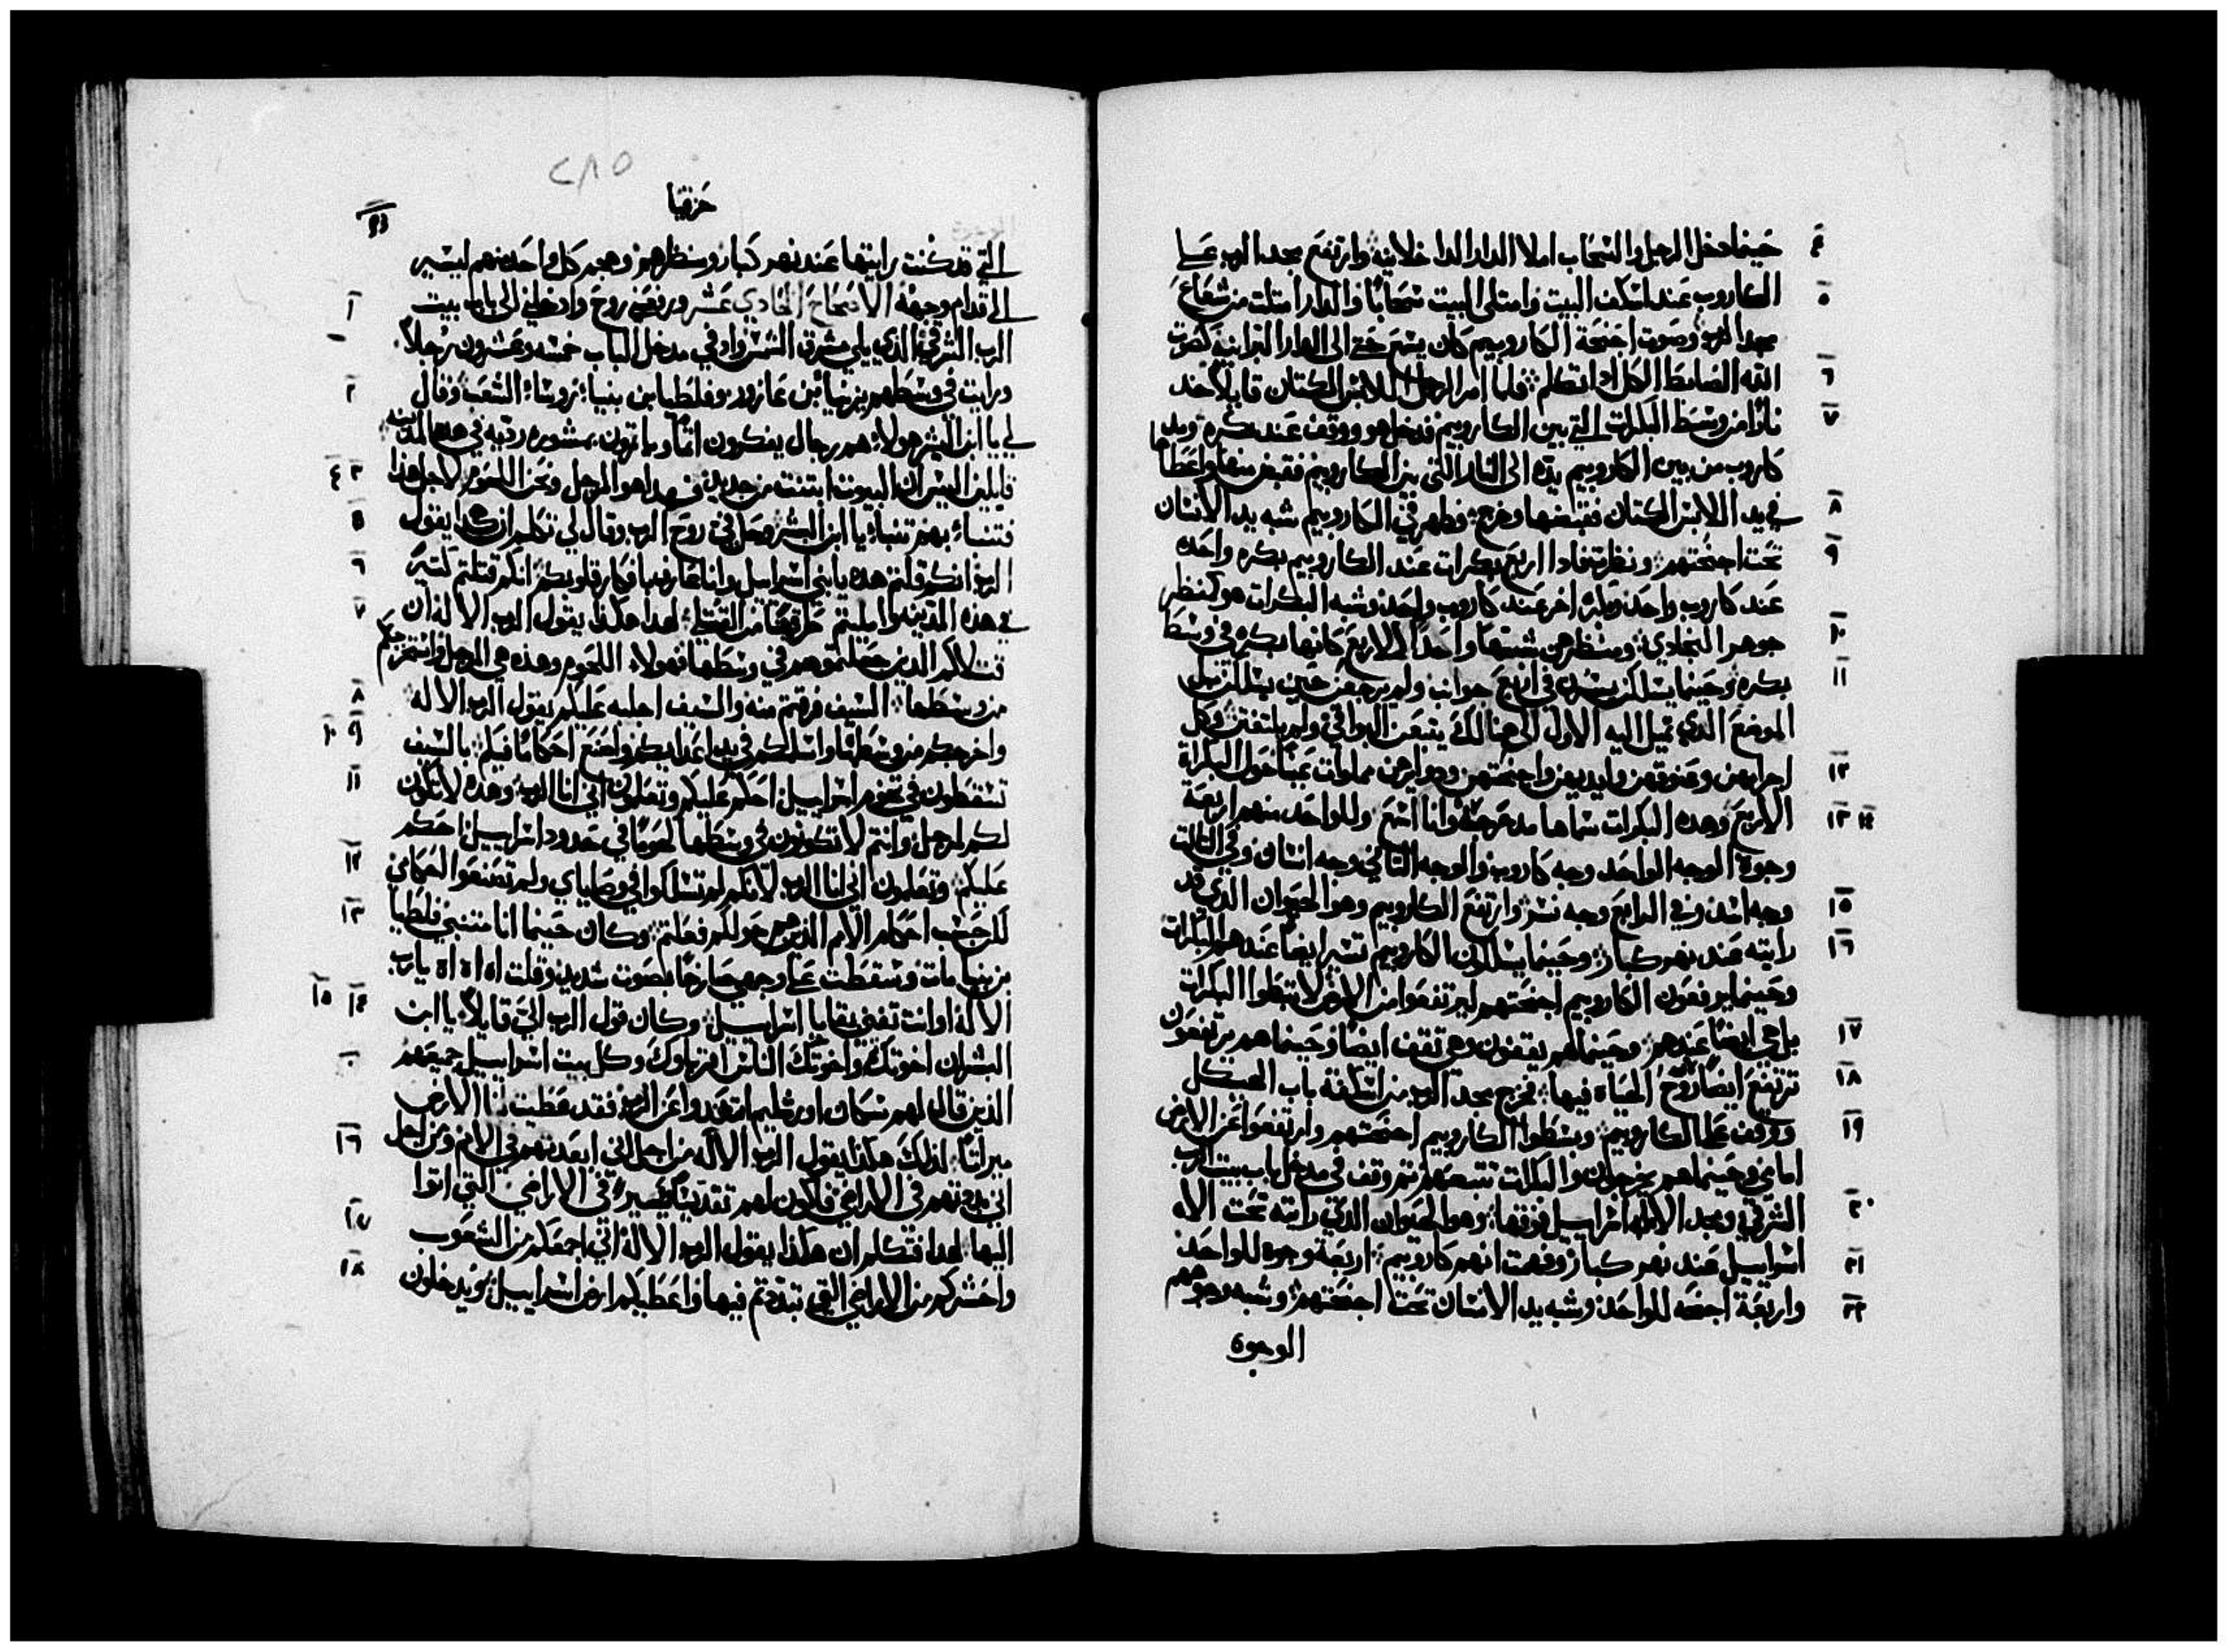 ٤ حينما دخل الرجل والسحاب املا الدار الداخلانيه وارتفع مجد الرب على
٥ الكاروب عند اسكف البيت وامتلى البيت سحابًا والدار امتلت من شعاع
مجد الرب وصوت اجنحة الكاروبيم كان يسمع حتى الى الدار البرانيه كصوت
٦ الله الضابط الكل اذا تكلم فلما امر الرجل اللابس الكتان قايلاً خد
٧ نارًا من وسط البكرات التي بين الكاروبيم فدخل هو ووقف عند بكره ومد
كاروب من بين الكاروبيم يده الى النار التي بين الكاروبيم فقبض منها واعطا
٨ في يد اللابس الكتان فقبضها وخرج وظهر في الكاروبيم شبه يد الانسان
٩ تحت اجنحتهم ونظرت فادا اربع بكرات عند الكاروبيم بكره واحده
عند كاروب واحد وبكره اخر عند كاروب واحد وشبه البكرات هو كمنظر
١٠ جوهر النجادي ومنظرهن شبتها واحدًا للاربع كانها بكره في وسط
١١ بكره وحينما يسلكن يسرن في اربع جوانب ولم يرجعن حين يسلكن بل
الموضع الذي تميل اليه الاولى الى هنالك يتبعن البواقي ولم يلتفتن وكل
١٢ اجرامهن وعنوقهن وايديهن واجنحتهن ودوايرهن مملوات عينًا حول البكراة
١٣ ١٤ الاربع وهده البكرات سماها مدحرجة وانا اسمع وللواحد منهم اربعة
وجوة الوجه الواحد وجه كاروب والوجه التاني وجه انسان وفي التالت
١٥ وجه اسد وفي الرابع وجه نسر وارتفع الكاروبيم وهو الحيوان الذي قد
١٦ رايته عند نهر كبار وحينما يسلكون الكاروبيم تسير ايضًا عندهم البكرات
وحينما يرفعون الكاروبيم اجنحتهم ليرتفعوا من الارض لا تبطوا البكرات
١٧ بل هي ايضًا عندهم وحينما هم يقفون وهي تقف ايضًا وحينما هم يرتفعون
١٨ ترتفع ايضًا روح الحياه فيها فخرج مجد الرب من اسكفة باب الهيكل
١٩ ووقف على الكاروبيم وبسطوا الكاروبيم اجنحتهم وارتفعوا عن الارض
امامي وحينما هم يخرجون والبكرات تتبعهم ثم وقف في مدخل باب بيت الرب
٢٠ الشرقي ومجد الاله اسراييل فوقها وهو الحيوان الذي رايته تحت الاه
٢١ اسراييل عند نهر كبار وفهمت انهم كاروبيم اربعة وجوه للواحد
٢٢ واربعة اجنحه للواحد وشبه يد الانسان تحت اجنحتهم وشبه وجوههم
الوجوة
٢٨٥
حزقيا
التي قد كنت رايتها عند نهر كبار ومنظرهم وهجم كل واحد منهم ليسير
١ الى قدام وجهه الاصحاح الحادي عشر ورفعني روح وادخلني الى باب بيت
الرب الشرقي الذي يلي مشرق الشمس واد في مدخل الباب خمسه وعشرون رجلاً
٢ ورايت في وسطهم يزنيا بن عازور وفلطيا بن بنيا روسا الشعب وقال
لي يا ابن البشر هولاء هم رجال يفكرون اثمًا وياتون بمشوره رديه في هذه المدينه
٣ ٤ قايلين اليس ان البيوت ابتنت من جديد فهذا هو المرجل ونحن اللحوم لاجل هدا
٥ فتنباء بهم تنباء يا ابن البشر وحل في روح الرب وقال لي تكلم ان هكدا يقول
٦ الرب انكم قلتم هده يا بني اسراييل وانا عارف بافكار قلوبكم انكم قتلتم كتير
٧ في هذه المدينه واملیتم طرقها من القتلى لهدا هكذا يقول الرب الاله ان
قتلاكم الذين جعلتموهم في وسطها فهولاء اللحوم وهذه هي المرجل واستخرجكم
٨ من وسطها السيف فرقتم منه والسيف اجلبه عليكم يقول الرب الاله
٩ ١٠ واخرجكم من وسطها واسلمكم في يد اعدايكم واصنع احكامًا فيكم بالسيف
١١ تسقطون في تخوم اسراييل احكم عليكم وتعلمون اني انا الرب وهده لا تكون
لكم لمرجل وانتم لا تكونون في وسطها لحومًا في حدود اسراييل احكم
١٢ عليكم وتعلمون اني انا الرب لانكم لم تسلكوا في وصاياي ولم تصنعوا احكامي
١٣ لكن حسب احكام الامم الذين هم حولكم فعلتم وكان حينما انا متنبي فلطيا
بن بنيا مات وسقطت على وجهي صارخًا بصوت شديد وقلت اه اه اه يا رب
١٤ ١٥ الاله اوانت تفني بقايا اسراييل وكان قول الرب الي قايلاً يا ابن
البشر ان اخوتك واخوتك الناس اقرباوك وكل بيت اسراييل جميعهم
الذين قالوا لهم سكان اورشليم ابتعدوا عن الرب فقد عطيت لنا الارض
١٦ ميراثًا لذلك هكذا يقول الرب الاله من اجل اني ابعدتهم في الامم ومن اجل
اني بددتهم في الاراضي فاكون لهم تقديسًا يسيرًا في الاراضي التي اتوا
١٧ اليها لهدا فتكلم ان هكذا يقول الرب الاله اني اجمعكم من الشعوب
١٨ واحشركم من الاراضي التي تبددتم فيها واعطيكم ارض اسراييل ويدخلون